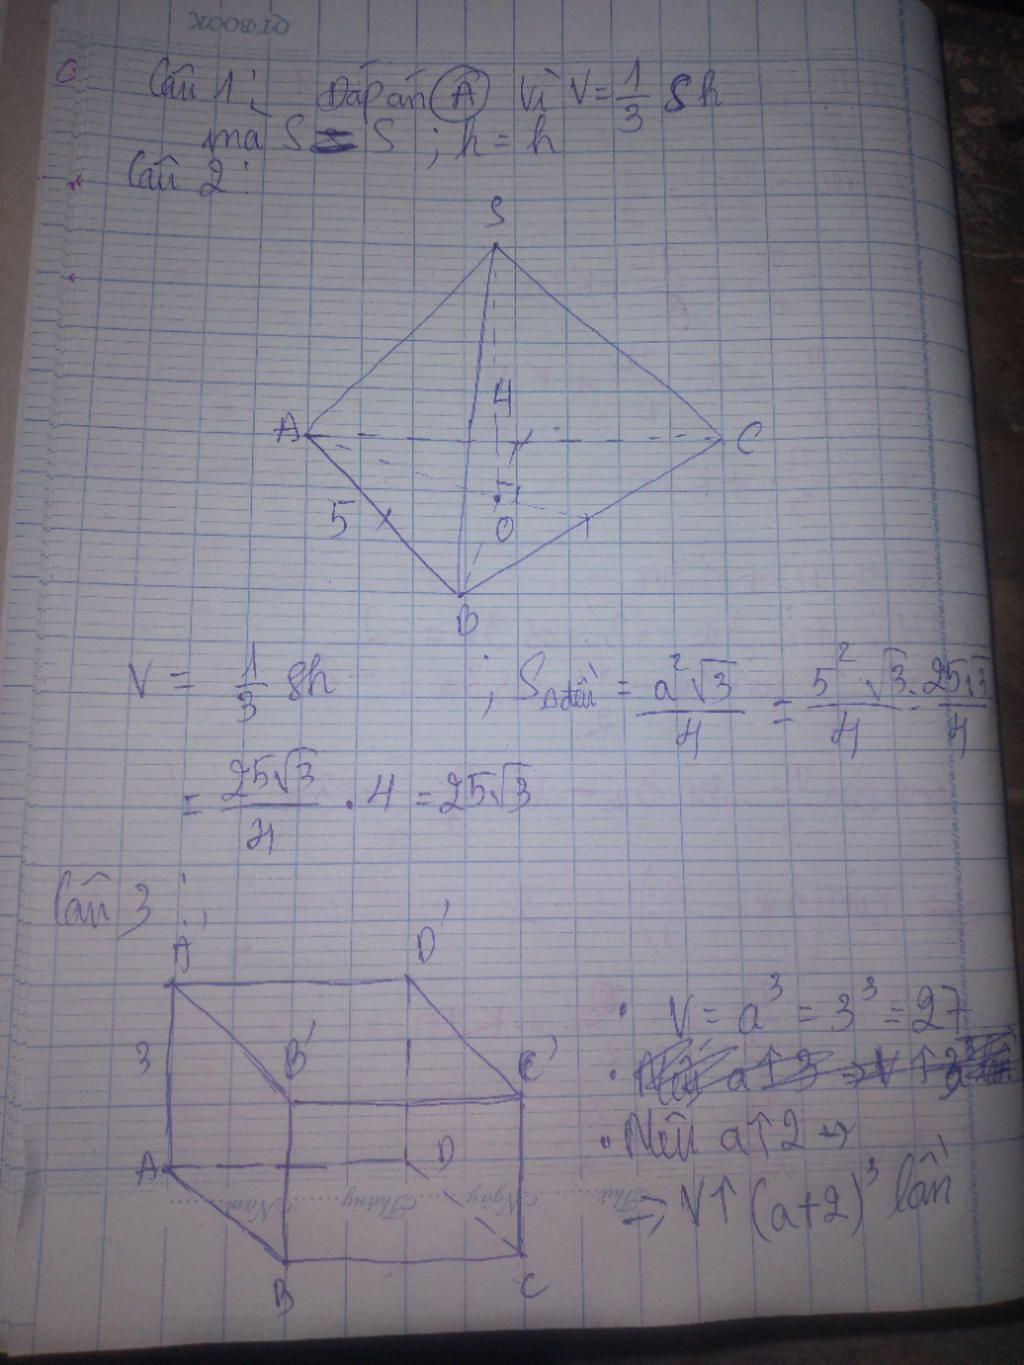 Câu 1: Đáp án A vì V = 1/3 Sh
mà S = S ; h = h
Câu 2:
S
4
A
C
5
O
B
V = 1/3 Sh ; SΔđều = a²√3/4 = 5²·√3/4 = 25√3/4
= 25√3/4 . 4 = 25√3
Câu 3:
A' D'
3
B' C'
A D
B C
• V = a³ = 3³ = 27
• Nếu a↑2 →
⇒ V↑ (a+2)³ lần
Thứ Ngày Tháng Năm